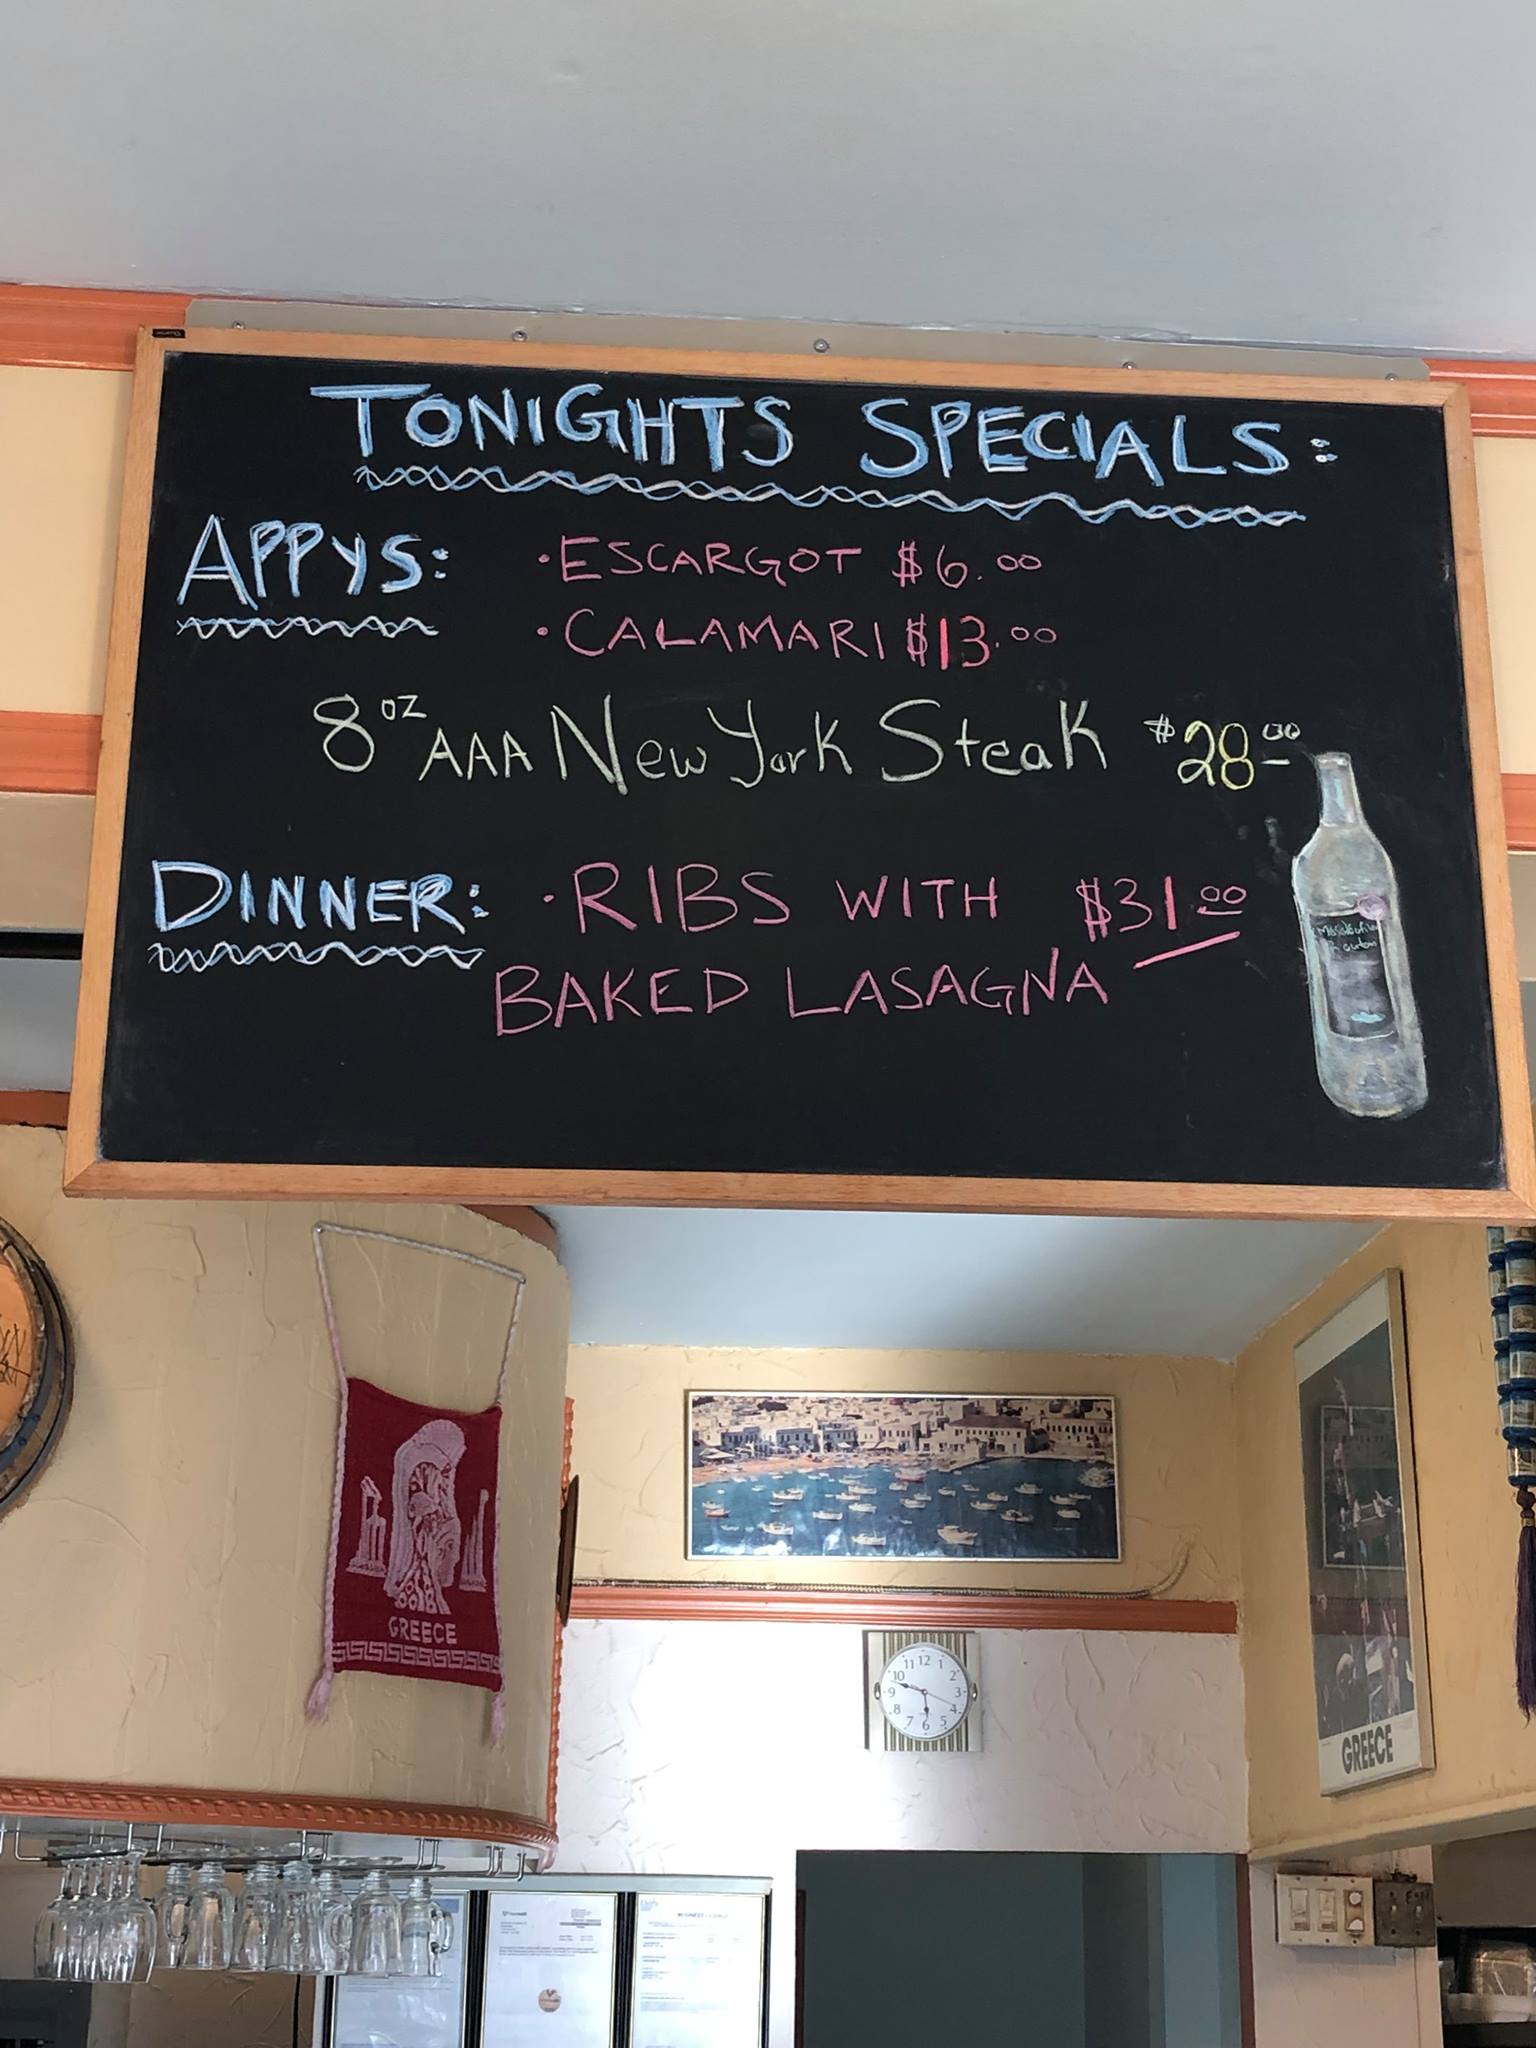 TONIGHTS SPECIALS:
APPYS: • ESCARGOT $6.00
• CALAMARI $13.00
8 oz AAA New York Steak $28.00
DINNER: • RIBS WITH $31.00
BAKED LASAGNA
GREECE
11 12 1
10 2
9 3
8 4
7 6 5
GREECE